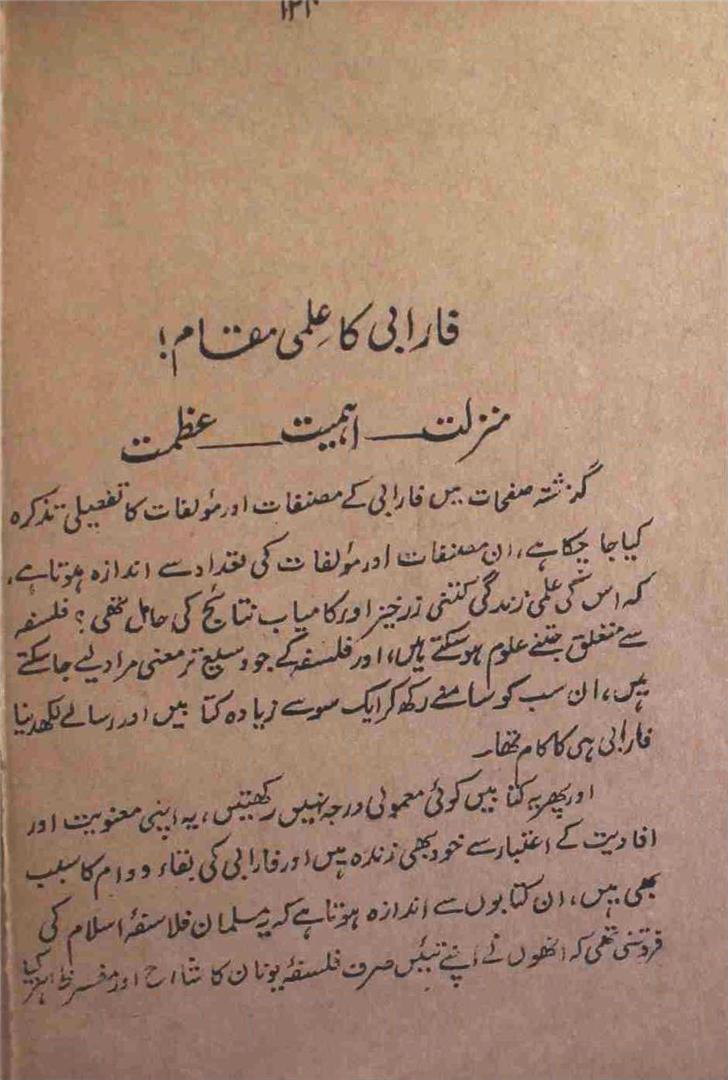 فارابی کا عِلمی مقام!
منزلت ــ اہمیت ــ عظمت
گذشتہ صفحات میں فارابی کے مصنفات اور مؤلفات کا تفصیلی تذکرہ
کیا جا چکا ہے، ان مصنفات اور مؤلفات کی تعداد سے اندازہ ہوتا ہے،
کہ اس کی علمی زندگی کتنی زرخیز اور کامیاب نتائج کی حامل تھی؟ فلسفہ
سے متعلق جتنے علوم ہو سکتے ہیں، اور فلسفہ کے جو وسیع تر معنی مراد لیے جا سکتے
ہیں، ان سب کو سامنے رکھ کر ایک سو سے زیادہ کتابیں اور رسالے لکھ دینا
فارابی ہی کا کام تھا۔
اور پھر یہ کتابیں کوئی معمولی درجہ نہیں رکھتیں، یہ اپنی معنویت اور
افادیت کے اعتبار سے خود بھی زندہ ہیں اور فارابی کی بقاء و دوام کا سبب
بھی ہیں، ان کتابوں سے اندازہ ہوتا ہے کہ یہ مسلمان فلاسفۂ اسلام کی
فروتنی تھی کہ انھوں نے اپنے تئیں صرف فلسفۂ یونان کا شارح اور مفسر ظاہر کیا